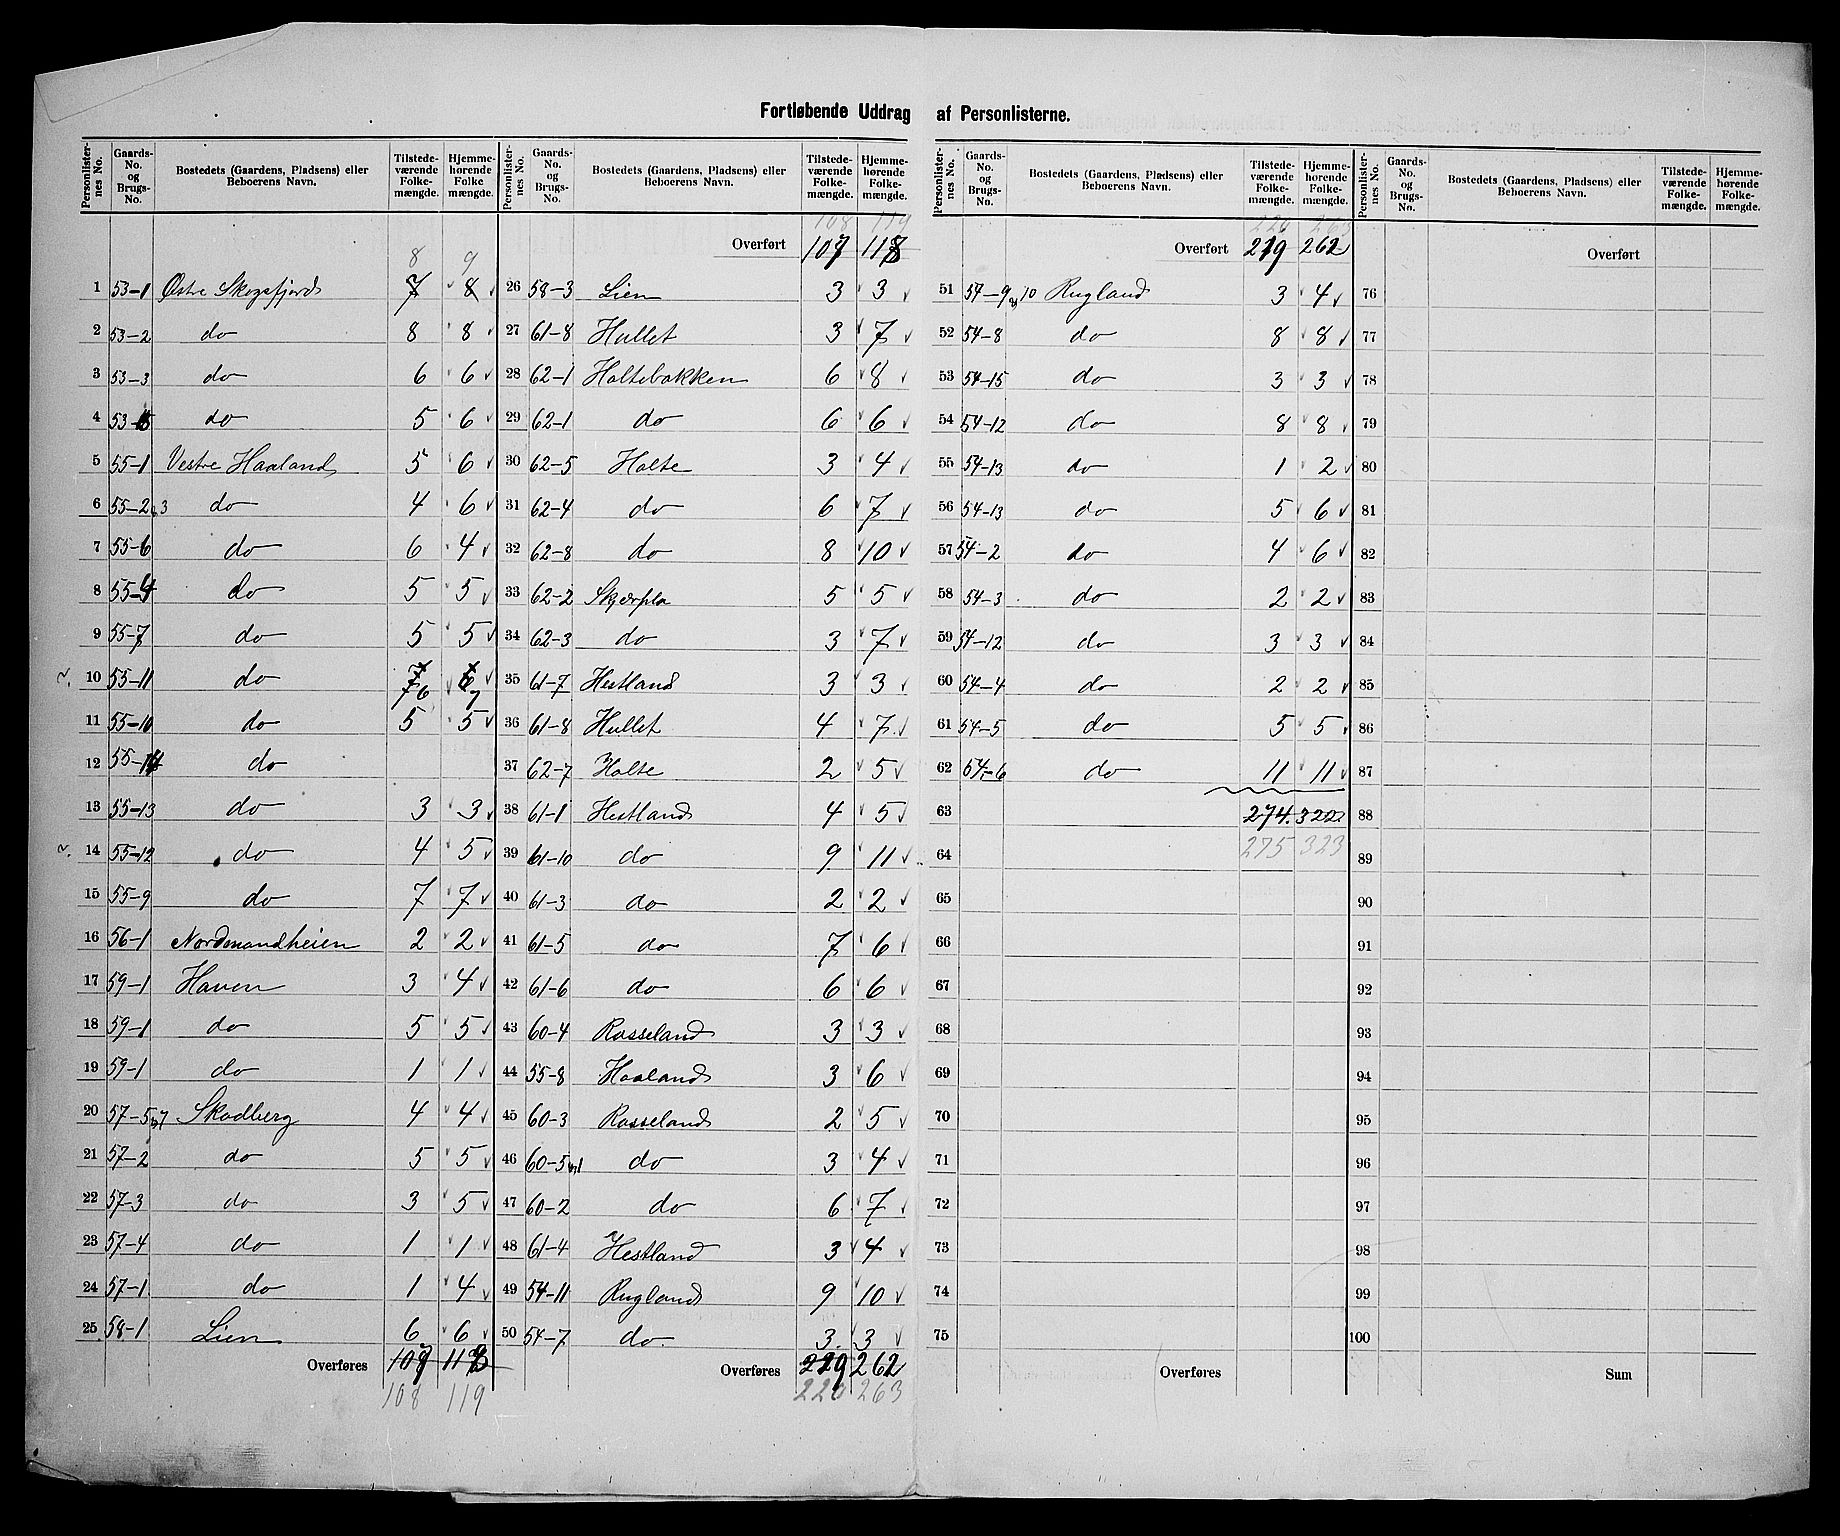 Fortløbende Uddrag af Personlisterne.
Personlisternes No. | Gaards-No. og Brugs-No. | Bostedets (Gaardens, Pladsens) eller Beboerens Navn. | Tilstedeværende Folkemængde. | Hjemmehørende Folkemængde.
8 9
1 53-1 Østre Skogsfjord 7 8
2 53-2 do 8 8
3 53-3 do 6 6
4 53- do 5 6
5 55-1 Vestre Haaland 5 6
6 55-2,3 do 4 6
7 55-6 do 6 4
8 55-4 do 5 5
9 55-7 do 5 5
10 55-11 do 6 7
11 55-10 do 5 5
12 55-14 do
13 55-13 do 3 3
14 55-12 do 4 5
15 55-9 do 7 7
16 56-1 Nordmandheien 2 2
17 59-1 Haven 3 4
18 59-1 do 5 5
19 59-1 do 1 1
20 57-5,7 Skadberg 4 4
21 57-2 do 5 5
22 57-3 do 3 5
23 57-4 do 1 1
24 57-1 do 1 4
25 58-1 Lien 6 6
Overføres 107 118
108 119
Personlisternes No. | Gaards-No. og Brugs-No. | Bostedets (Gaardens, Pladsens) eller Beboerens Navn. | Tilstedeværende Folkemængde. | Hjemmehørende Folkemængde.
108 119
Overført 107 118
26 58-3 Lien 3 3
27 61-8 Hullet 3 7
28 62-1 Holtebakken 6 8
29 62-1 do 6 6
30 62-5 Holte 3 4
31 62-4 do 6 7
32 62-8 do 8 10
33 62-2 Skjærpla 5 5
34 62-3 do 3 7
35 61-7 Hestland 3 3
36 61-8 Hullet 4 7
37 62-7 Holte 2 5
38 61-1 Hestland 4 5
39 61-10 do 9 11
40 61-3 do 2 2
41 61-5 do 7 6
42 61-6 do 6 6
43 60-4 Rosseland 3 3
44 55-8 Haaland 3 6
45 60-3 Rosseland 2 5
46 60-5 do 3 4
47 60-2 do 6 7
48 61-4 Hestland 3 4
49 54-11 Rugland 9 10
50 54-7 do 3 3
Overføres 219 262
220 263
Personlisternes No. | Gaards-No. og Brugs-No. | Bostedets (Gaardens, Pladsens) eller Beboerens Navn. | Tilstedeværende Folkemængde. | Hjemmehørende Folkemængde.
220 263
Overført 219 262
51 54-9 10 Rugland 3 4
52 54-8 do 8 8
53 54-15 do 3 3
54 54-12 do 8 8
55 54-13 do 1 2
56 54-13 do 5 6
57 54-2 do 4 6
58 54-3 do 2 2
59 54-12 do 3 3
60 54-4 do 2 2
61 54-5 do 5 5
62 54-6 do 11 11
63 274 322
64 275 323
65
66
67
68
69
70
71
72
73
74
75
Overføres
Personlisternes No. | Gaards-No. og Brugs-No. | Bostedets (Gaardens, Pladsens) eller Beboerens Navn. | Tilstedeværende Folkemængde. | Hjemmehørende Folkemængde.
Overført
76
77
78
79
80
81
82
83
84
85
86
87
88
89
90
91
92
93
94
95
96
97
98
99
100
Sum